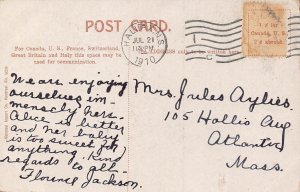 POST CARD.
For Canada, U. S., France, Switzerland,
Great Britain and Italy this space may be
used for communication.
JUL 21
1910
We are enjoying
ourselves im-
mensely here.
Alice is better
and her baby
is too sweet for
anything. Kind
regards to all
Florence Jackson.
Mrs. Jules Aylies.
105 Hollis Aug
Atlantic
Mass.